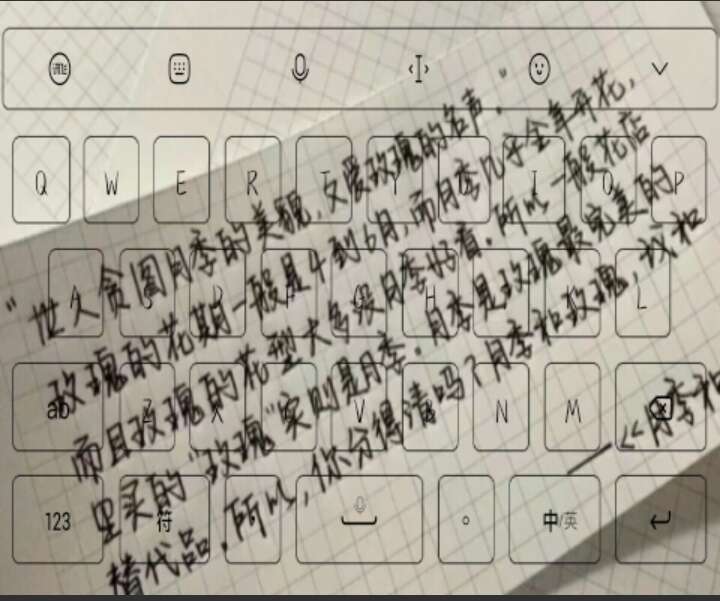 Q W E R T Y I O P
A S D G H L
ab Z X V N M
123 符 中/英
"世人贪图月季的美貌,又爱玫瑰的名声。"
玫瑰的花期一般是4到6月,而月季几乎全年开花,
而且玫瑰的花型大多没月季好看。所以一般花店
里买的"玫瑰"实则是月季。月季是玫瑰最完美的
替代品。所以,你分得清吗?月季和玫瑰,我和
——《月季和